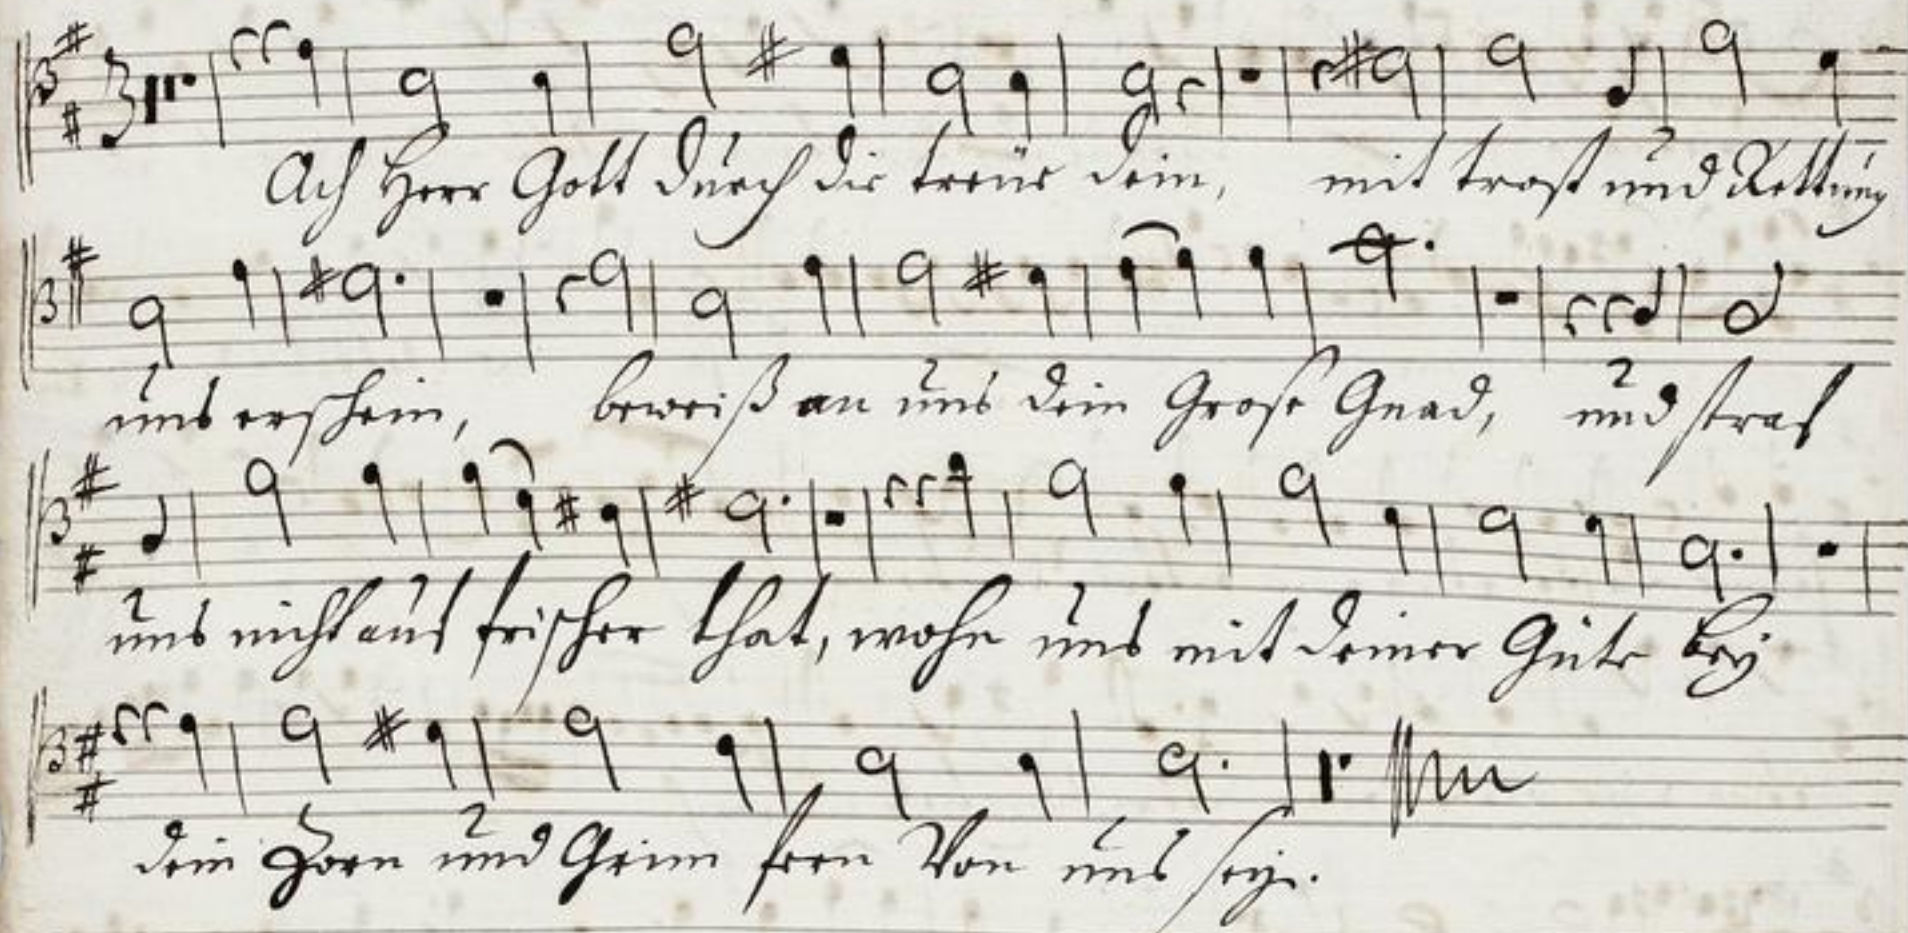 Ach Herr Gott durch die treüe dein, mit trost und Rettung
uns erschein, beweiß an uns dein Große Gnad, und straf
uns nicht auf frischer that, wohn uns mit deiner Güte bey
dein Zorn und Grim fern Von uns sey.